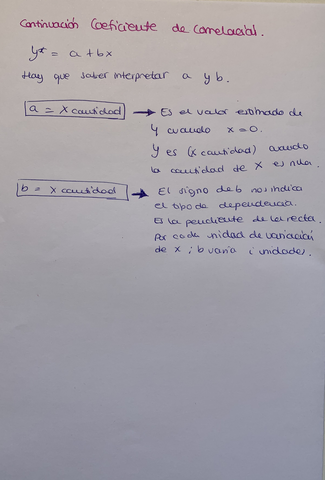 Continuación Coeficiente de Correlación.
y* = a + bx
Hay que saber interpretar a y b.
a = x cantidad → Es el valor estimado de
y cuando x=0.
y es (x cantidad) cuando
la cantidad de x es nula.
b = x cantidad → El signo de b nos indica
el tipo de dependencia.
Es la pendiente de la recta.
Por cada unidad de variación
de x ; b varía i unidades.